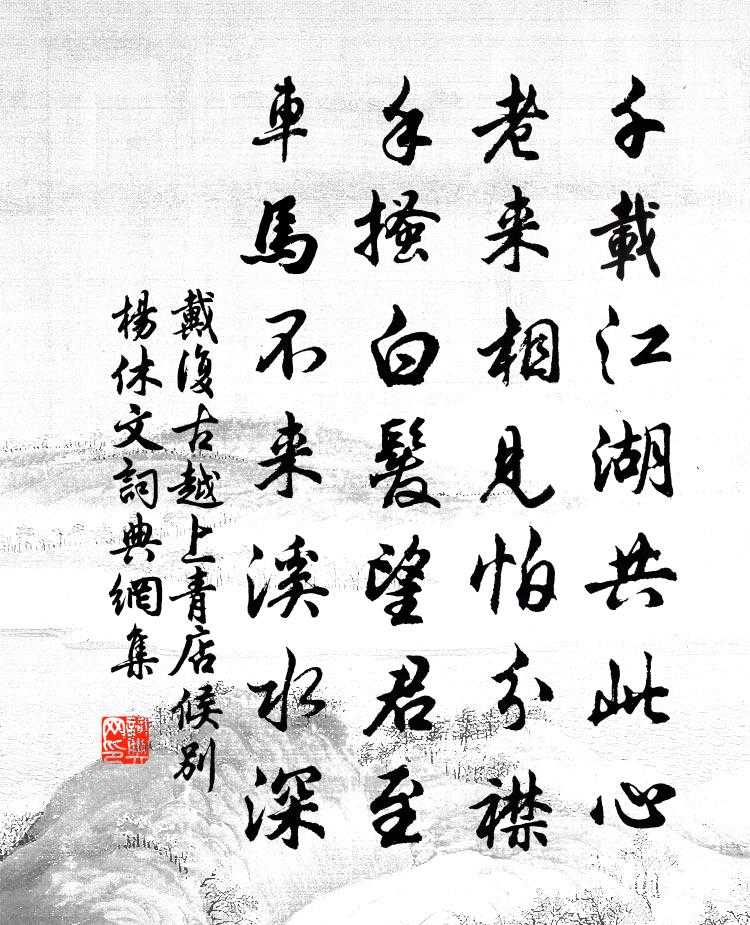 千載江湖共此心
老来相見怕分襟
手搔白髮望君至
車馬不来溪水深
戴復古越上青店候別
楊休文詞典網集